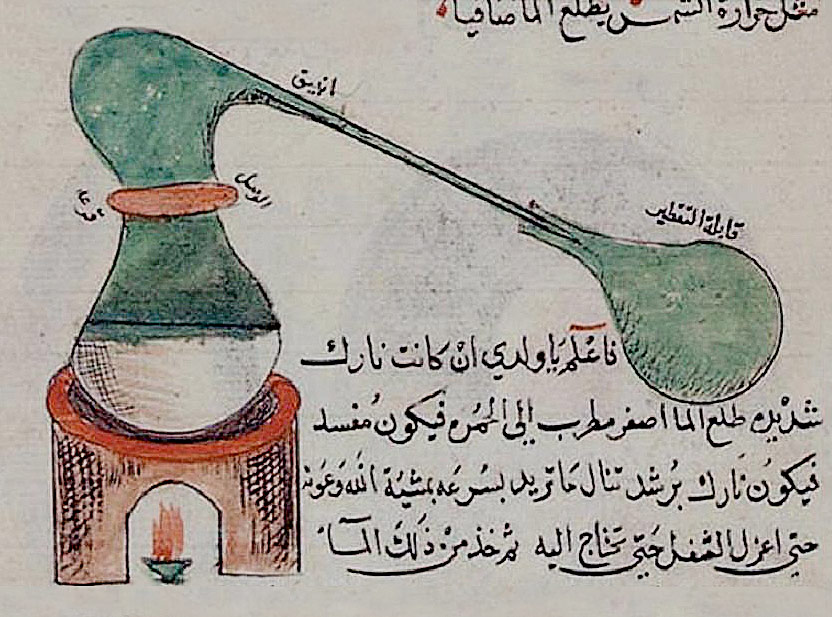 مثل حرارة الشمس يطلع الما صافيا
انبيق
الوصل
قابلة التقطير
فاعلم يا ولدي ان كانت نارك
شديده طلع الما اصفر مطرب الى الحمره فيكون مفسد
فيكون نارك برشد تنال ما تريد بسرعه بمشية الله وعونه
حتى اعزل الثفل حتى تحتاج اليه ثم خذ من ذلك المآء